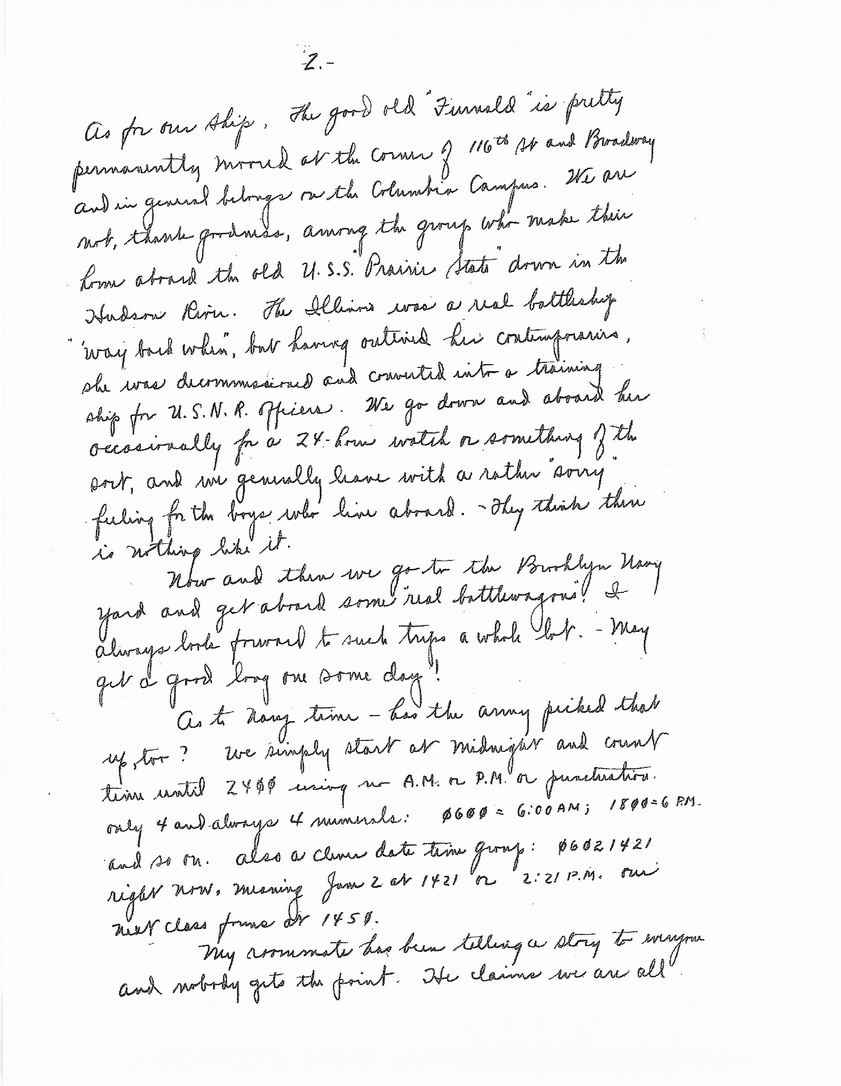 2.-
As for our ship. The good old "Furnald" is pretty
permanently moored at the corner of 116th St and Broadway
and in general belongs on the Columbia Campus. We are
not, thank goodness, among the group who make their
home aboard the old U.S.S. "Prairie State" down in the
Hudson River. The Illinois was a real battleship
"way back when", but having outlived her contemporaries,
she was decommissioned and converted into a training
ship for U.S.N.R. officers. We go down and aboard her
occasionally for a 24-hour watch or something of the
sort, and we generally leave with a rather "sorry"
feeling for the boys who live aboard. - They think there
is nothing like it.
Now and then we go to the Brooklyn Navy
Yard and get aboard some "real battlewagons"! I
always look forward to such trips a whole lot. - May
get a good long one some day!
As to Navy time - has the army picked that
up, too? We simply start at midnight and count
time until 24ØØ using no A.M. or P.M. or punctuation.
only 4 and always 4 numerals: Ø6ØØ = 6:00 AM; 18ØØ=6 P.M.
and so on. Also a clever date time group: Ø6Ø21421
right now, meaning Jun 2 at 1421 or 2:21 P.M. Our
next class forms at 145Ø.
My roommate has been telling a story to everyone
and nobody gets the point. He claims we are all